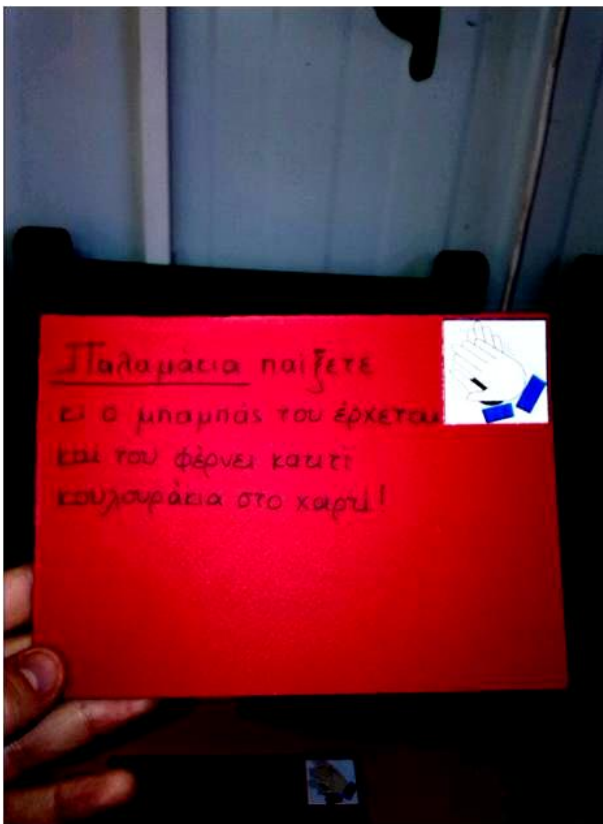 Παλαμάκια παίξετε
κι ο μπαμπάς του έρχεται
και του φέρνει κατιτί
κουλουράκια στο χαρτί!